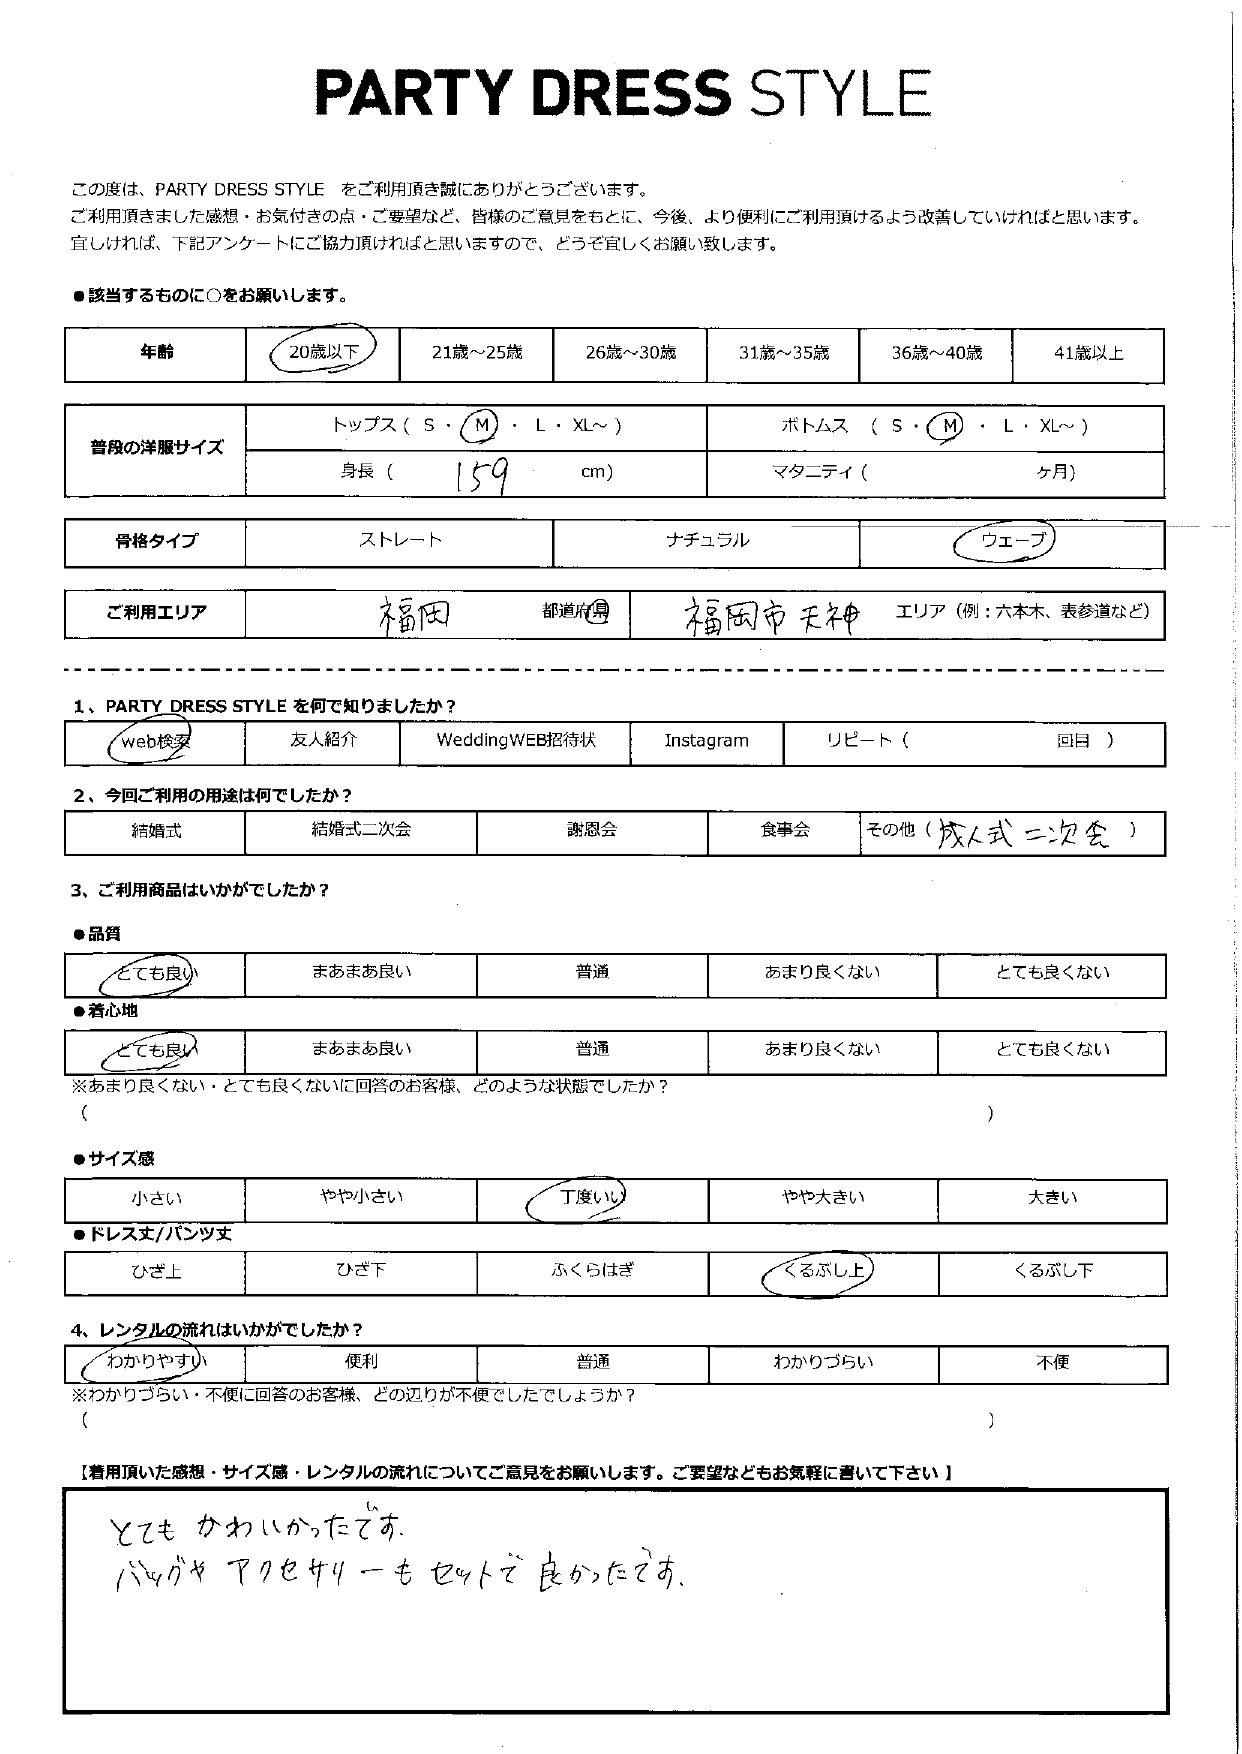 PARTY DRESS STYLE
この度は、PARTY DRESS STYLE をご利用頂き誠にありがとうございます。
ご利用頂きました感想・お気付きの点・ご要望など、皆様のご意見をもとに、今後、より便利にご利用頂けるよう改善していければと思います。
宜しければ、下記アンケートにご協力頂ければと思いますので、どうぞ宜しくお願い致します。
●該当するものに○をお願いします。
年齢 20歳以下 21歳～25歳 26歳～30歳 31歳～35歳 36歳～40歳 41歳以上
普段の洋服サイズ
トップス ( S ・ M ・ L ・ XL～ ) ボトムス ( S ・ M ・ L ・ XL～ )
身長 ( 159 cm) マタニティ ( ヶ月)
骨格タイプ ストレート ナチュラル ウェーブ
ご利用エリア 福岡 都道府県 福岡市 天神 エリア（例：六本木、表参道など）
1、PARTY DRESS STYLE を何で知りましたか？
web検索 友人紹介 WeddingWEB招待状 Instagram リピート（ 回目 ）
2、今回ご利用の用途は何でしたか？
結婚式 結婚式二次会 謝恩会 食事会 その他（ 成人式 二次会 ）
3、ご利用商品はいかがでしたか？
●品質
とても良い まあまあ良い 普通 あまり良くない とても良くない
●着心地
とても良い まあまあ良い 普通 あまり良くない とても良くない
※あまり良くない・とても良くないに回答のお客様、どのような状態でしたか？
（ ）
●サイズ感
小さい やや小さい 丁度いい やや大きい 大きい
●ドレス丈/パンツ丈
ひざ上 ひざ下 ふくらはぎ くるぶし上 くるぶし下
4、レンタルの流れはいかがでしたか？
わかりやすい 便利 普通 わかりづらい 不便
※わかりづらい・不便に回答のお客様、どの辺りが不便でしたでしょうか？
（ ）
【着用頂いた感想・サイズ感・レンタルの流れについてご意見をお願いします。ご要望などもお気軽に書いて下さい 】
とても かわいかったです.
バッグや アクセサリーも セットで 良かったです.